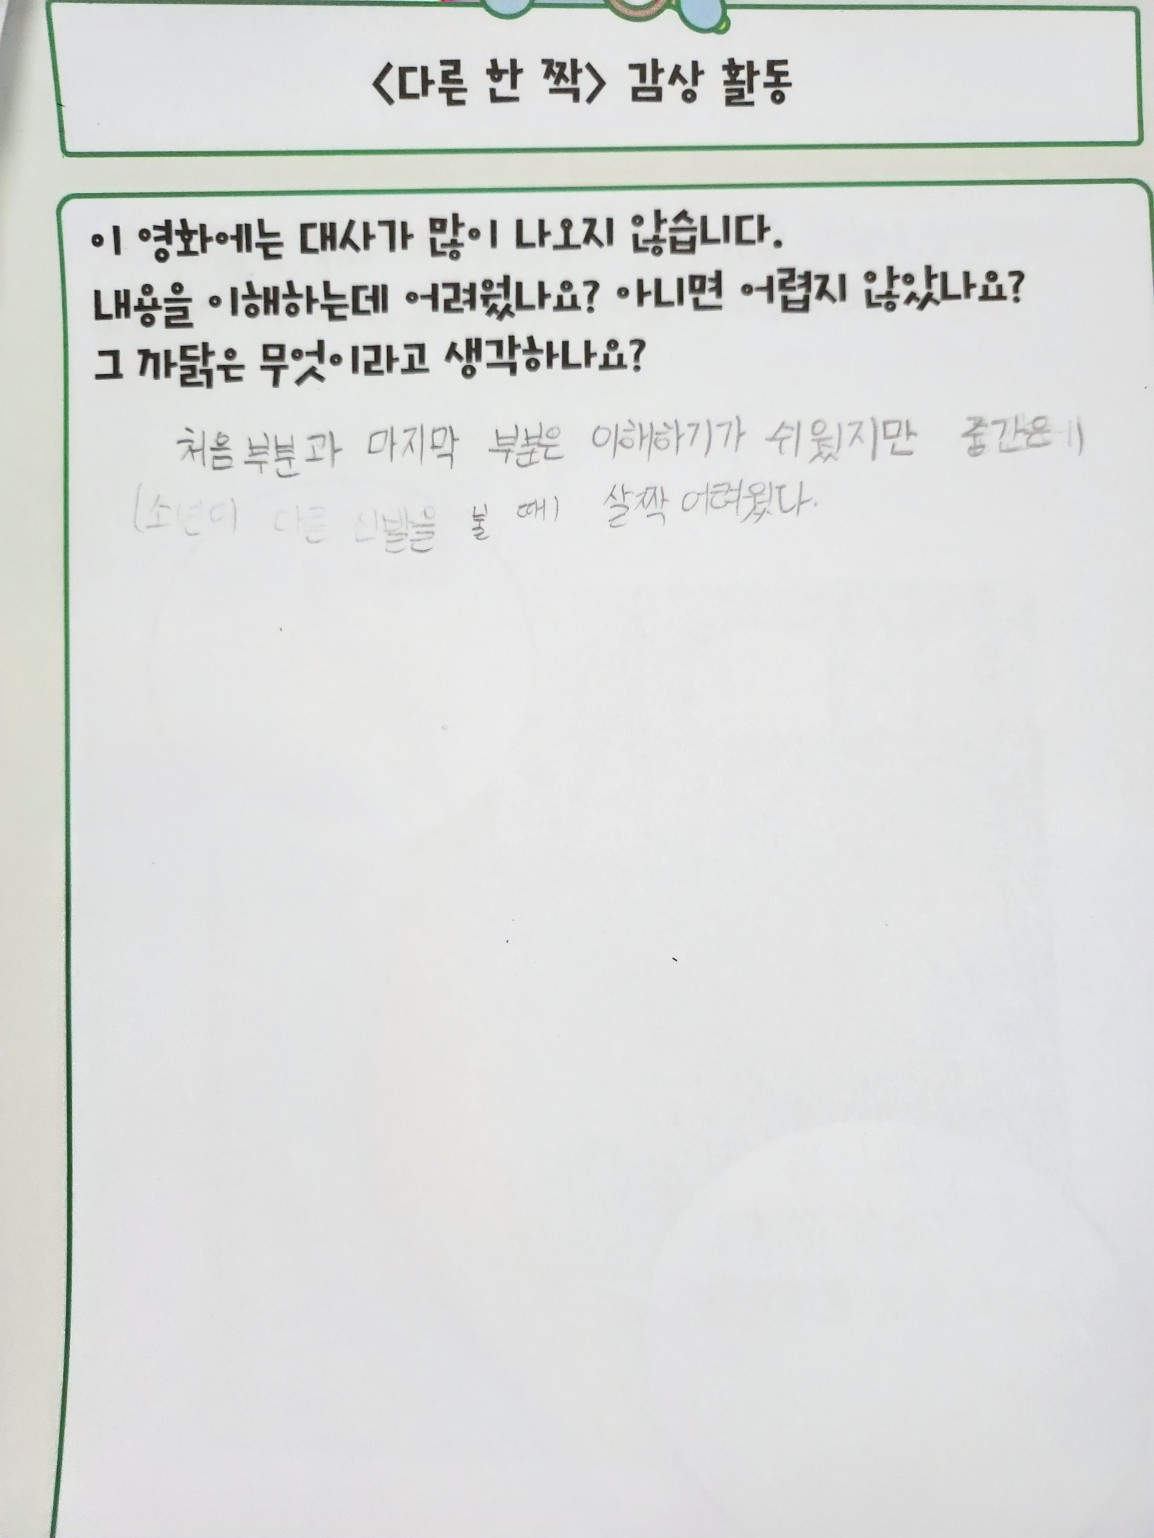 <다른 한 짝> 감상 활동
이 영화에는 대사가 많이 나오지 않습니다.
내용을 이해하는데 어려웠나요? 아니면 어렵지 않았나요?
그 까닭은 무엇이라고 생각하나요?
처음 부분과 마지막 부분은 이해하기가 쉬웠지만 중간은
(소년이 다른 신발을 볼 때) 살짝 어려웠다.